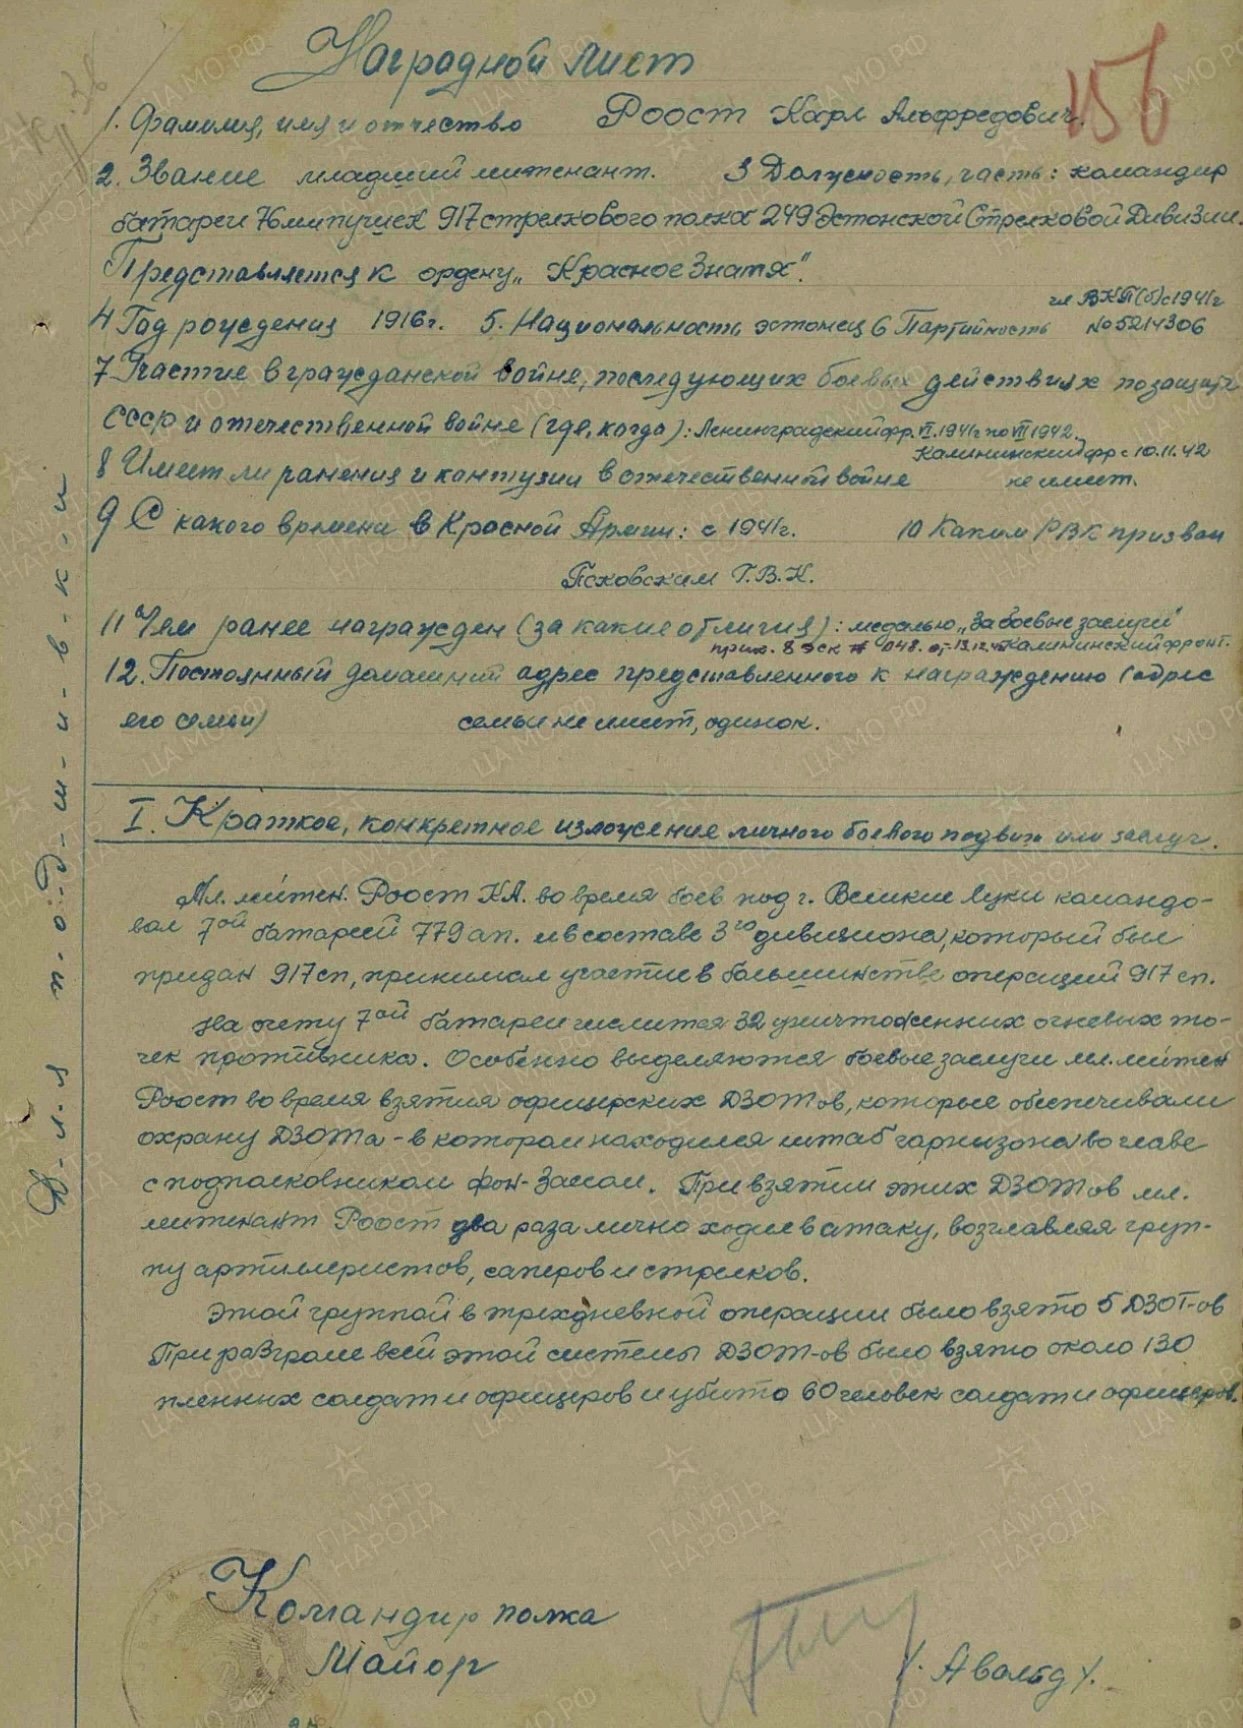 Наградной лист
156
1. Фамилия, имя и отчество Роост Карл Альфредович.
2. Звание младший лейтенант. 3 Должность, часть: командир
батареи 76 мм пушек 917 стрелкового полка 249 Эстонской Стрелковой Дивизии.
Представляется к ордену „Красное Знамя".
чл ВКП(б) с 1941г
4 Год рождения 1916г. 5. Национальность эстонец 6 Партийность №5214306
7 Участие в гражданской войне, последующих боевых действиях по защите
СССР и отечественной войне (где, когда): Ленинградский фр. VII.1941г по VII 1942.
Калининский фр с 10.11.42
8 Имеет ли ранения и контузии в отечественной войне не имеет.
9 С какого времени в Красной Армии: с 1941г. 10 Каким РВК призван
Псковским Г.В.К.
11 Чем ранее награжден (за какие отличия): медалью „За боевые заслуги"
прик. 8 эск № 048. от 13.12.42 Калининский фронт.
12. Постоянный домашний адрес представленного к награждению (адрес
его семьи) семьи не имеет, одинок.
I. Краткое, конкретное изложение личного боевого подвига или заслуг.
Мл. лейтен. Роост К.А. во время боев под г. Великие Луки командо-
вал 7ой батареей 779 ап. и в составе 3го дивизиона, который был
придан 917 сп, принимал участие в большинстве операций 917 сп.
На счету 7ой батареи числится 32 уничтоженных огневых то-
чек противника. Особенно выделяются боевые заслуги мл. лейтен
Роост во время взятия офицерских ДЗОТов, которые обеспечивали
охрану ДЗОТа - в котором находился штаб гарнизона во главе
с подполковником фон-Засом. При взятии этих ДЗОТов мл.
лейтенант Роост два раза лично ходил в атаку, возглавляя груп-
пу артиллеристов, саперов и стрелков.
Этой группой в трехдневной операции было взято 5 ДЗОТ-ов
При разгроме всей этой системы ДЗОТ-ов было взято около 130
пленных солдат и офицеров и убито 60 человек солдат и офицеров.
Командир полка
Майор /. Авальд /.
Д-л-я п-о-д-ш-и-в-к-и
ПАМЯТЬ НАРОДА
ЦА МО РФ